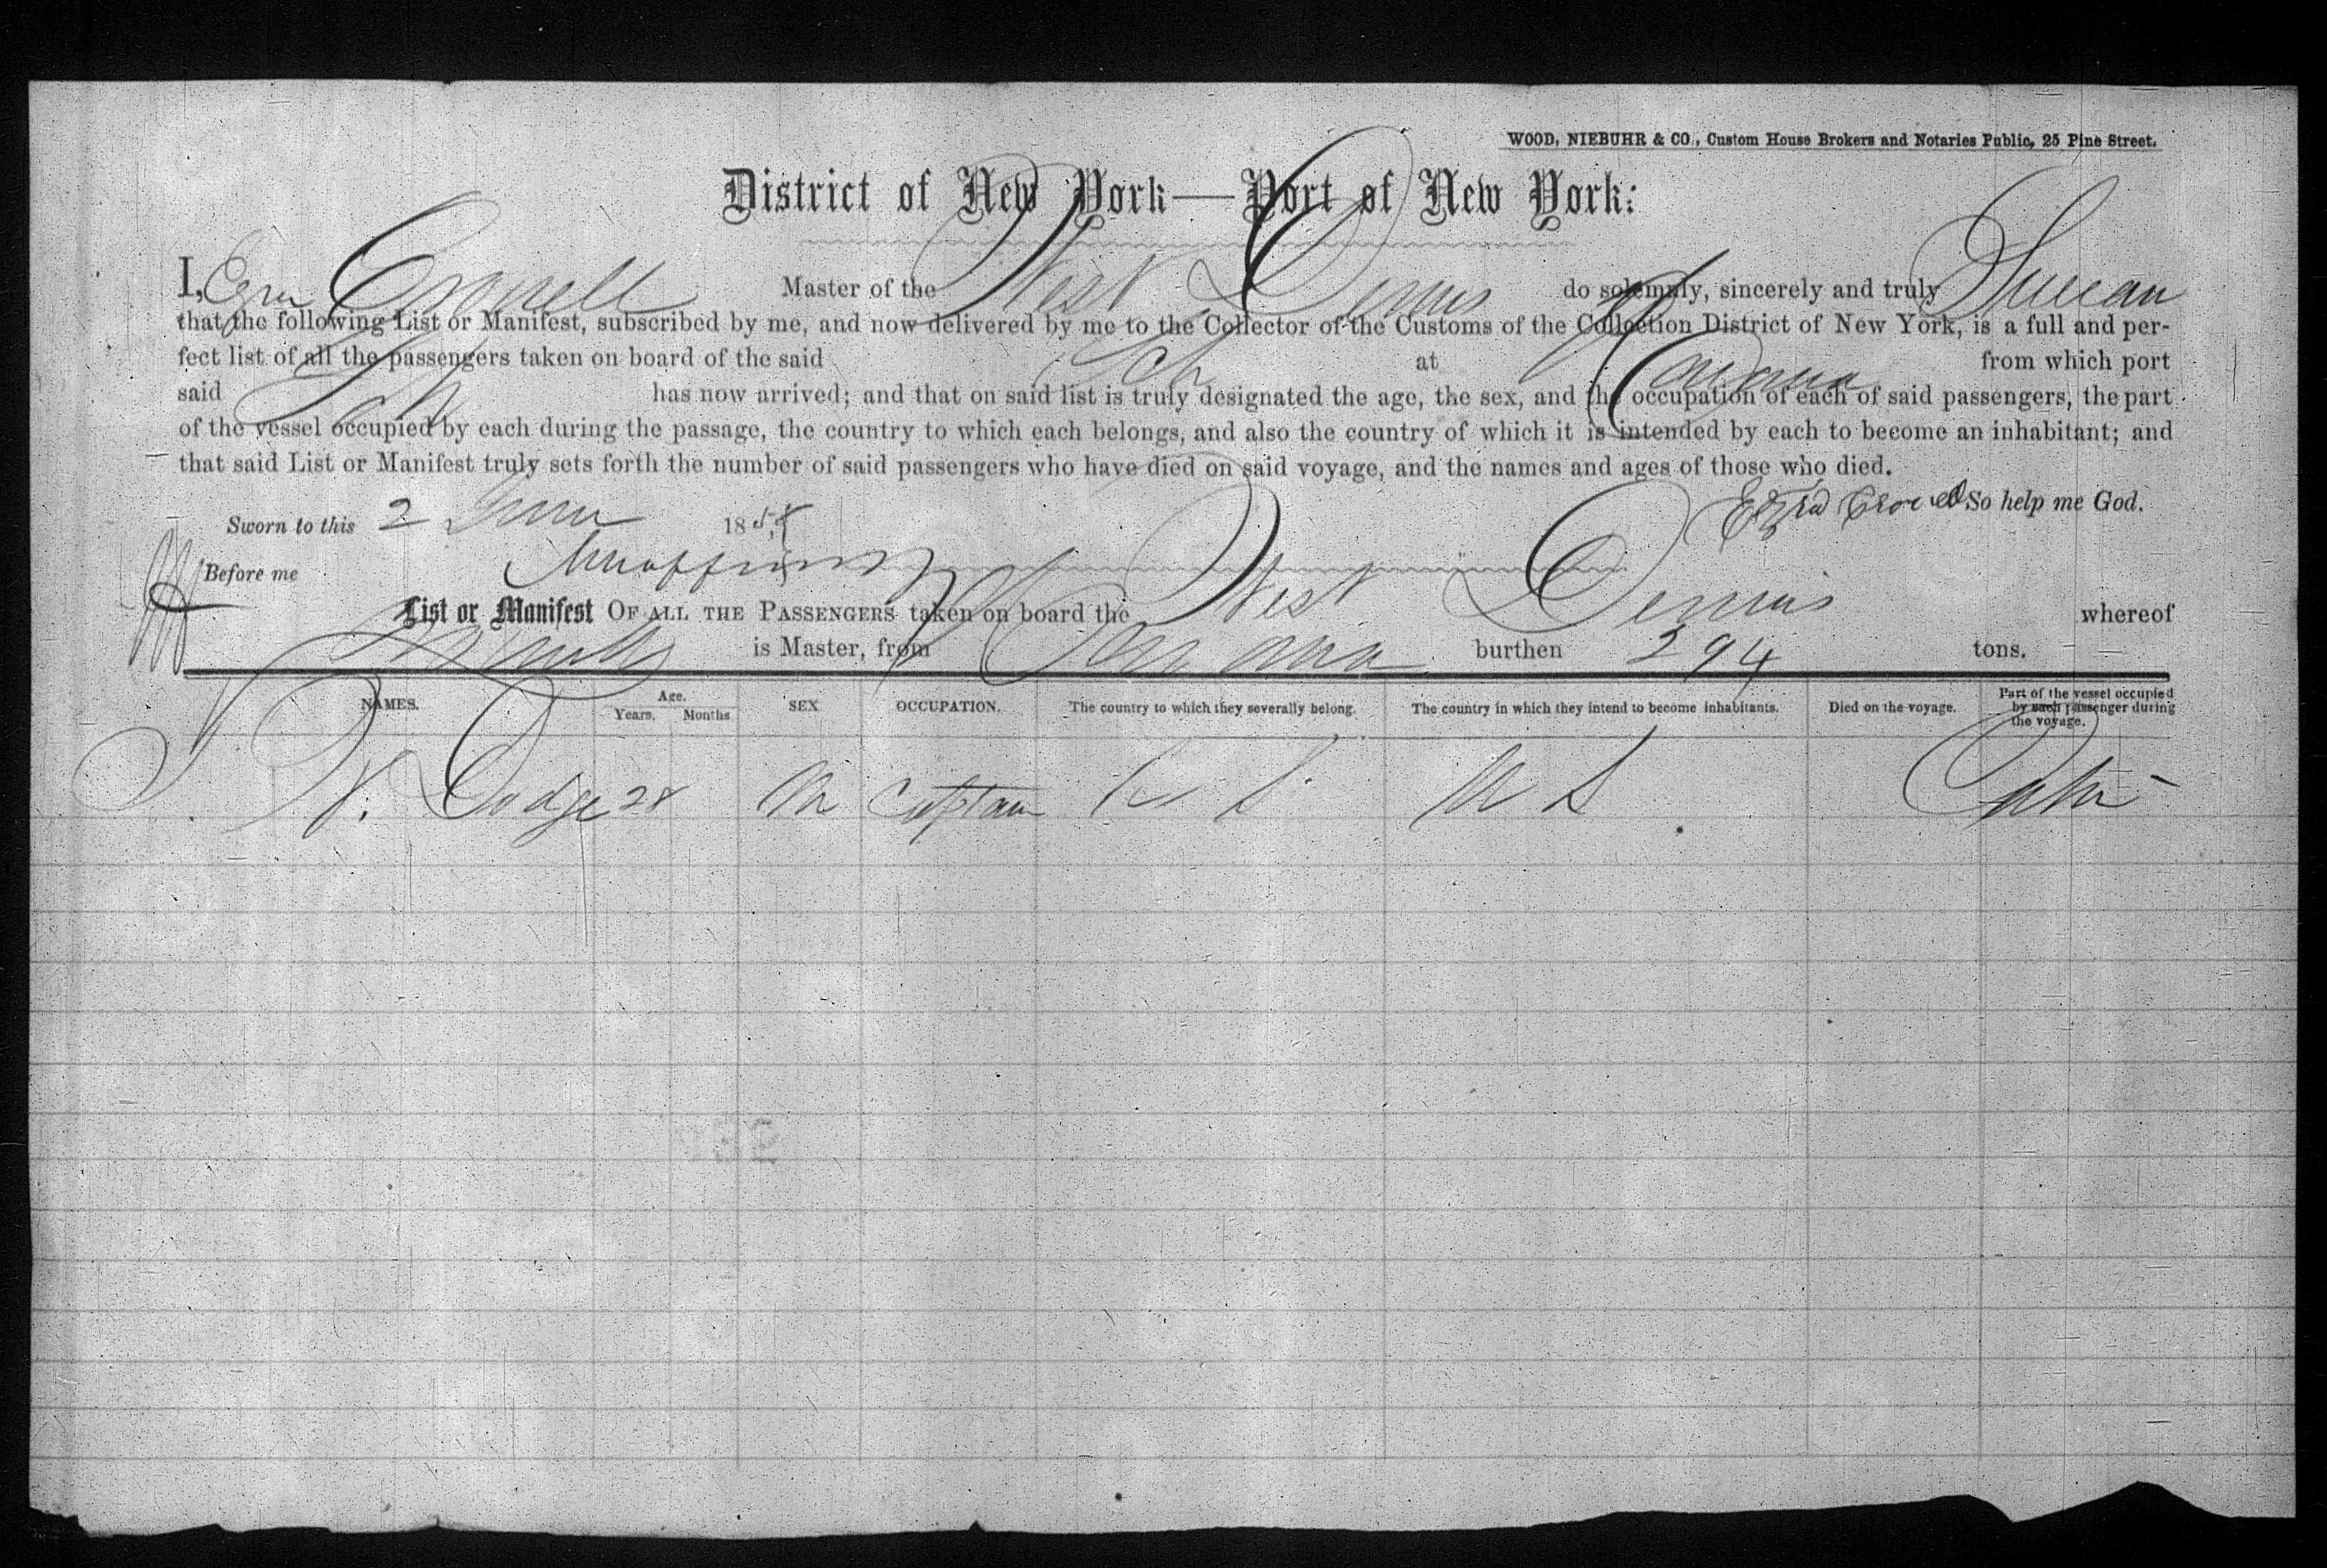 WOOD, NIEBUHR & CO., Custom House Brokers and Notaries Public, 25 Pine Street.
District of New York—Port of New York:
I, Ezra Crowell Master of the West Dennis do solemnly, sincerely and truly Swear
that the following List or Manifest, subscribed by me, and now delivered by me to the Collector of the Customs of the Collection District of New York, is a full and per-
fect list of all the passengers taken on board of the said Sch at from which port
said Sch has now arrived; and that on said list is truly designated the age, the sex, and the occupation of each of said passengers, the part
of the vessel occupied by each during the passage, the country to which each belongs, and also the country of which it is intended by each to become an inhabitant; and
that said List or Manifest truly sets forth the number of said passengers who have died on said voyage, and the names and ages of those who died.
Ezra Crowell So help me God.
Sworn to this 2 June 1858
Before me
List or Manifest OF ALL THE PASSENGERS taken on board the West Dennis whereof
is Master, from burthen 294 tons.
NAMES. Age. Years. Months SEX OCCUPATION. The country to which they severally belong. The country in which they intend to become inhabitants. Died on the voyage. Part of the vessel occupied by each passenger during the voyage.
Dodge 28 M Captain U S U S Cabin